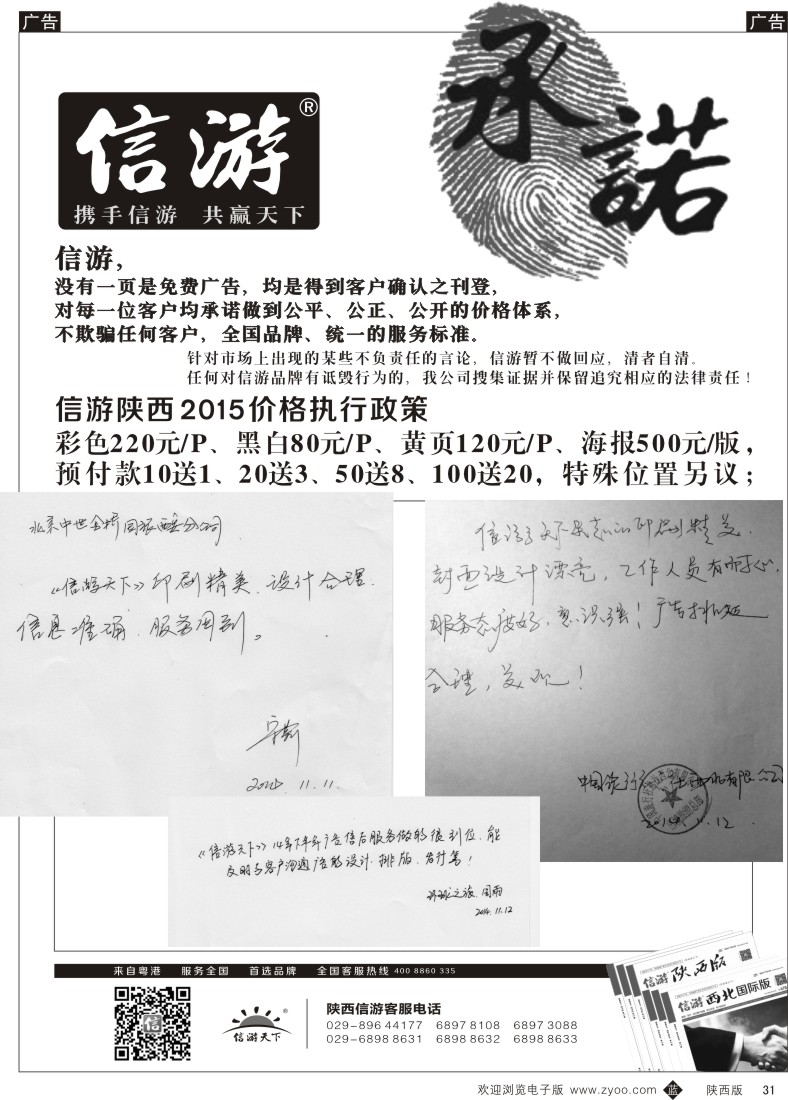 广告
广告
承諾
信游®
携手信游 共赢天下
信游，
没有一页是免费广告，均是得到客户确认之刊登，
对每一位客户均承诺做到公平、公正、公开的价格体系，
不欺骗任何客户，全国品牌、统一的服务标准。
针对市场上出现的某些不负责任的言论，信游暂不做回应，清者自清。
任何对信游品牌有诋毁行为的，我公司搜集证据并保留追究相应的法律责任！
信游陕西2015价格执行政策
彩色220元/P、黑白80元/P、黄页120元/P、海报500元/版，
预付款10送1、20送3、50送8、100送20，特殊位置另议；
北京中世金桥国旅西安分公司
《信游天下》印刷精美、设计合理、
信息准确、服务周到。
2014.11.11.
信游天下杂志的印刷精美，
封面设计漂亮，工作人员有耐心，
服务态度好，意识强！广告排版
合理，美观！
中国旅行
2014.11.12
《信游天下》14年下半年广告售后服务做的很到位，能
及时与客户沟通广告的设计、排版、发行等！
环球之旅 周雨
2014.11.12
来自粤港 服务全国 首选品牌 全国客服热线 400 8860 335
信游
信游天下
陕西信游客服电话
029-896 44177 6897 8108 6897 3088
029-6898 8631 6898 8632 6898 8633
信游 陕西版
信游 西北国际版
欢迎浏览电子版 www.zyoo.com 蓝 陕西版 31